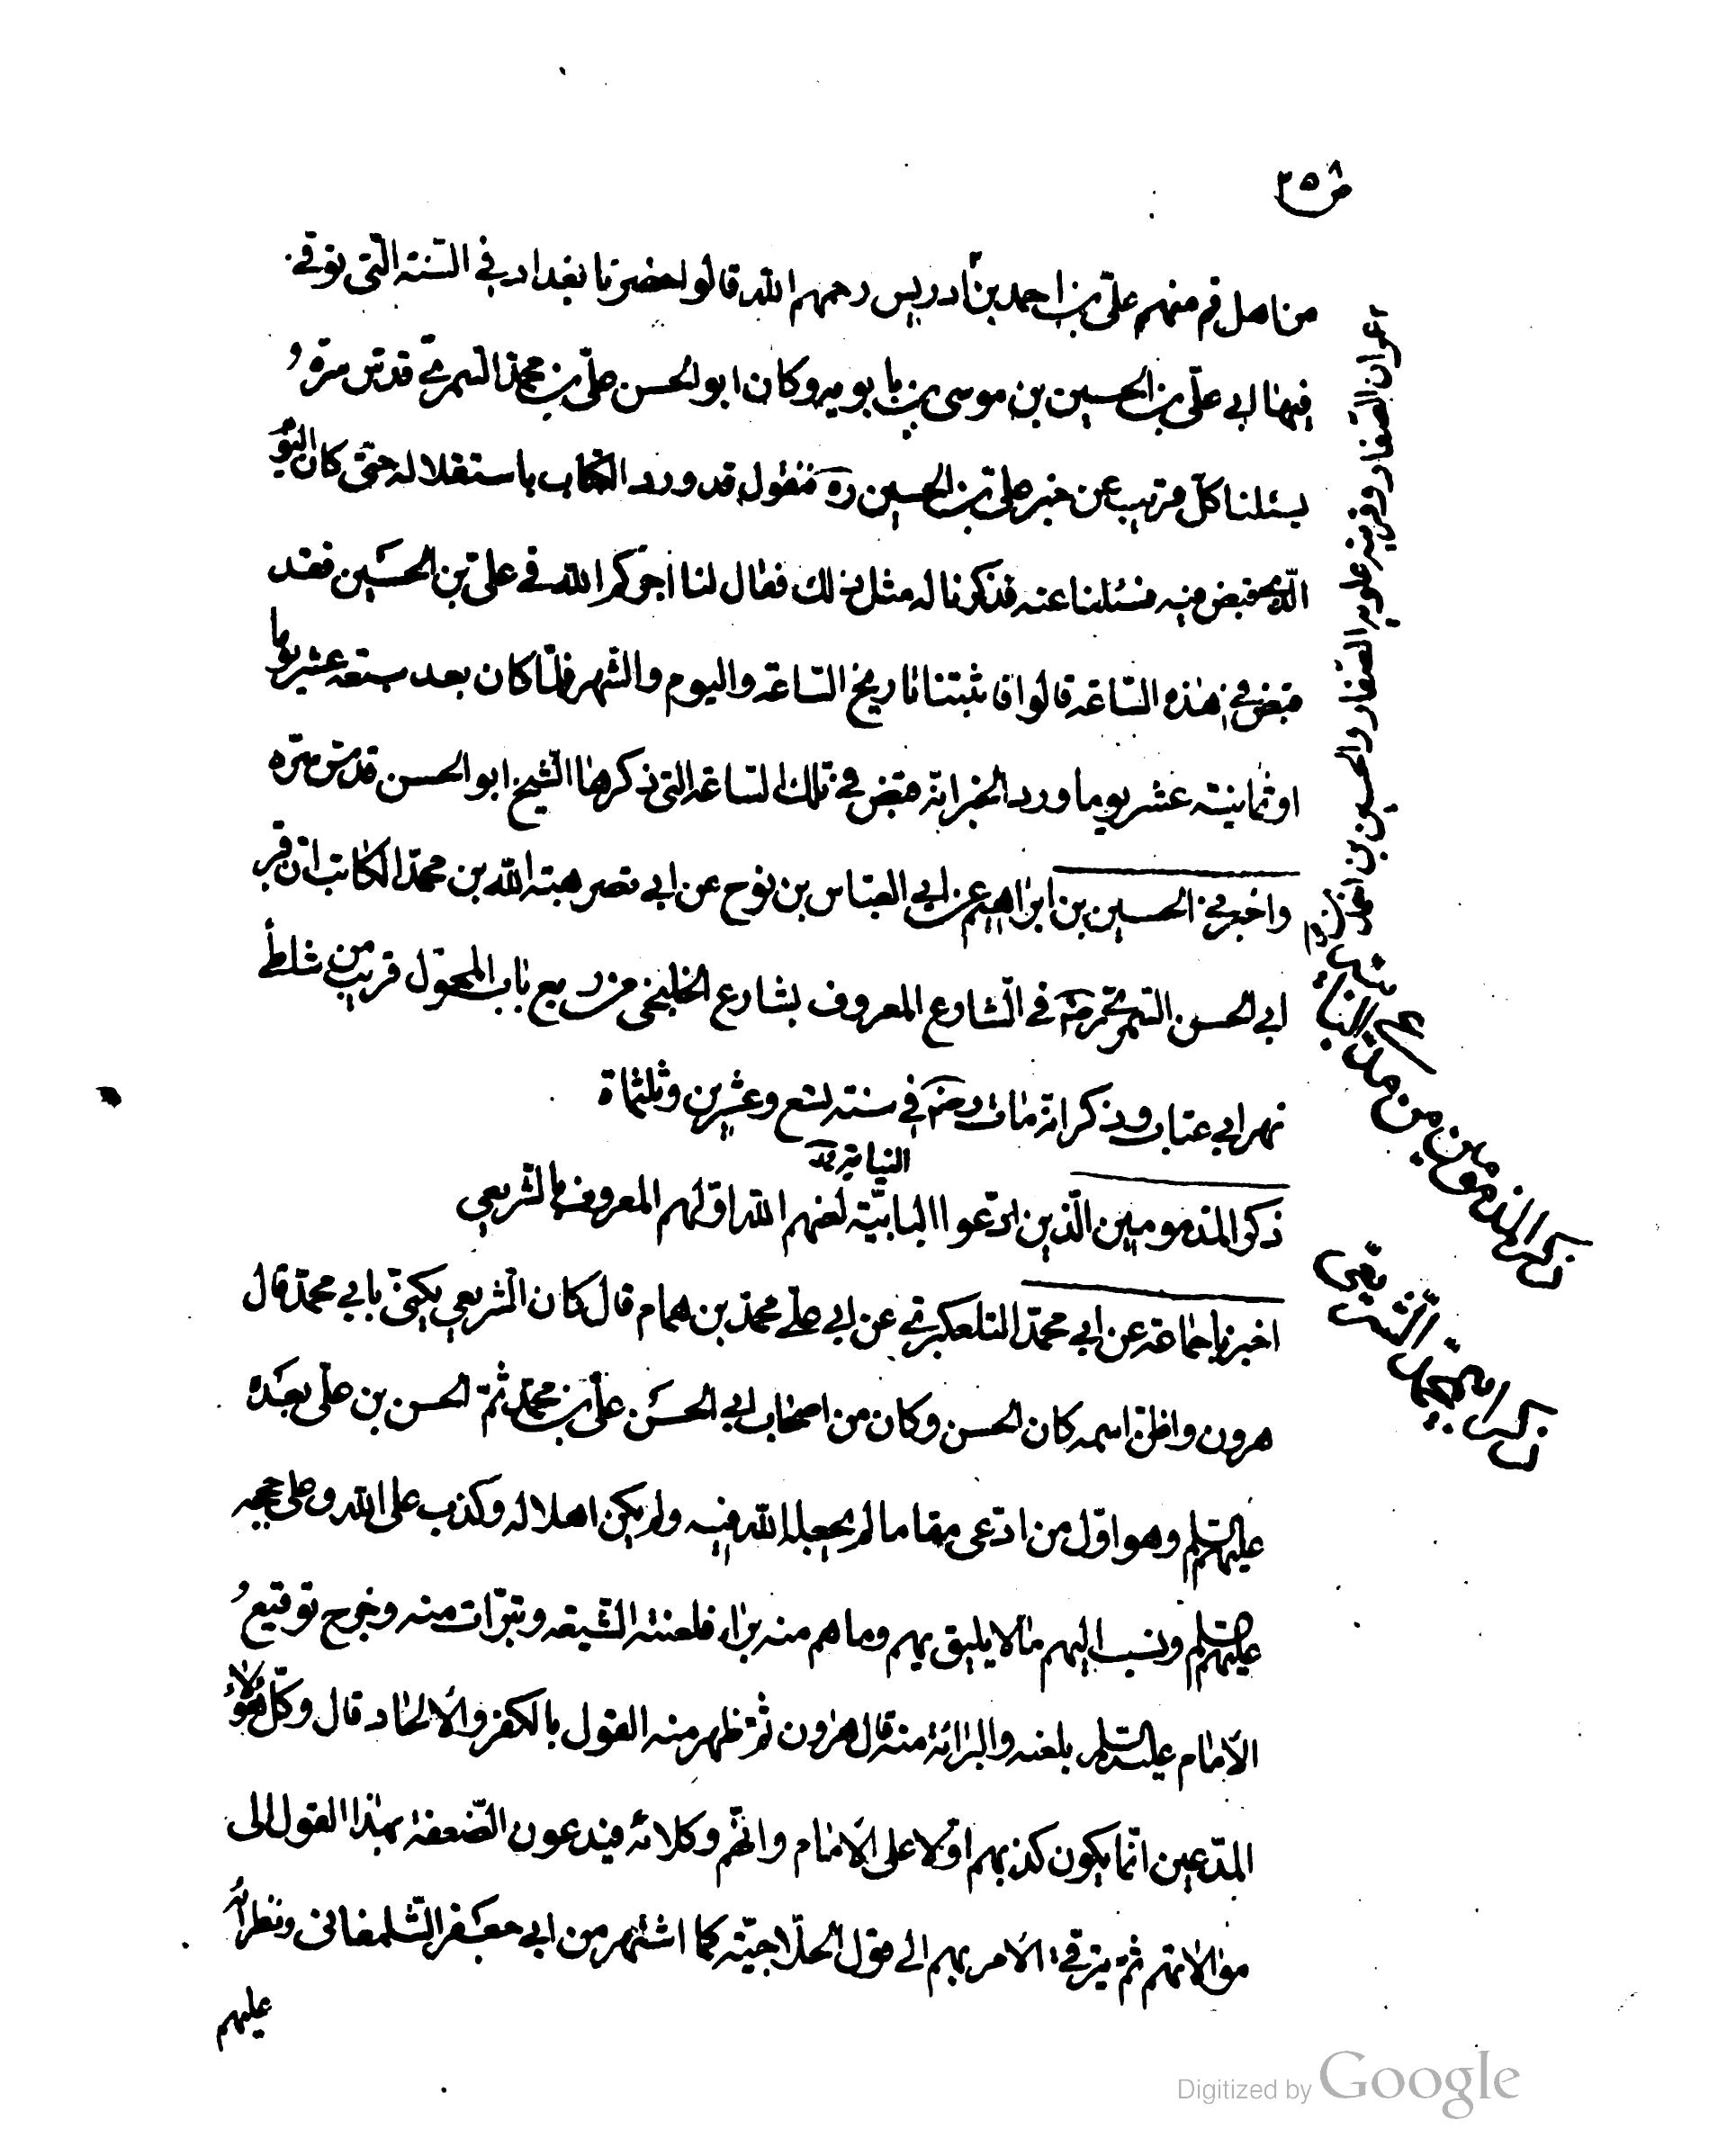 ص ٢٥٨
من اهل قم منهم علی بن احمد بن ادریس رحمهم الله قالوا حضرنا بغداد في السّنة الّتي توفي
فيها ابي علي بن الحسين بن موسى بن بابويه وكان ابو الحسن علي بن محمد السمري قدس سره
يسئلنا كلّ قريب عن خبر علي بن الحسين ره فنقول قد ورد الكتاب باستقلاله حتى كان اليوم
الذي قبض فيه فسئلنا عنه فذكرنا له مثل ذلك فقال لنا آجركم الله في علي بن الحسين فقد
قبض في هذه السّاعة قالوا فاثبتنا تاريخ السّاعة واليوم والشّهر فلمّا كان بعد سبعة عشر يوما
او ثمانية عشر يوما ورد الخبر انّه قبض في تلك السّاعة التي ذكرها الشّيخ ابو الحسن قدّس سرّه
واخبرني الحسين بن ابراهيم عن ابي العبّاس بن نوح عن ابي نصر هبة الله بن محمّد الكاتب انّ قبر
ابي الحسن السّمري رضه في الشّارع المعروف بشارع الخلنجي من ربع باب المحوّل قريب من شاطئ
نهر ابي عتاب وذكر انّه مات رضه في سنة تسع وعشرين وثلثمأة
النيابة
ذكر المذمومين الّذين ادّعوا البابيّة لعنهم الله اوّلهم المعروف بالشّريعي
اخبرنا جماعة عن ابي محمّد التلعكبري عن ابي علي محمّد بن همام قال كان الشّريعي يكنّى بابي محمّد قال
هرون واظنّ اسمه كان الحسن وكان من اصحاب ابي الحسن علي بن محمّد ثمّ الحسن بن علي بعده
عليهم السلم وهو اوّل من ادّعى مقاما لم يجعله الله فيه ولم يكن اهلا له وكذب على الله وعلى حججه
عليهم السلم ونسب اليهم مالا يليق بهم وما هم منه براء فلعنته الشّيعة وتبرّأت منه وخرج توقيع
الامام عليه السلم بلعنه والبرائة منه قال هرون ثم ظهر منه القول بالكفر والالحاد قال وكلّ هؤلاء
المدّعين انّما يكون كذبهم اوّلا على الامام وانّهم وكلائه فيدعون الضّعفة بهذا القول الى
موالاتهم ثمّ يترقّي الامر بهم الى قول الحلّاجيّة كما اشتهر من ابي جعفر الشّلمغاني ونظرائه
عليهم
عمران الصّفار وقريبه علويه الصّفار والحسين بن احمد بن ادريس
ذكر المذمومين من